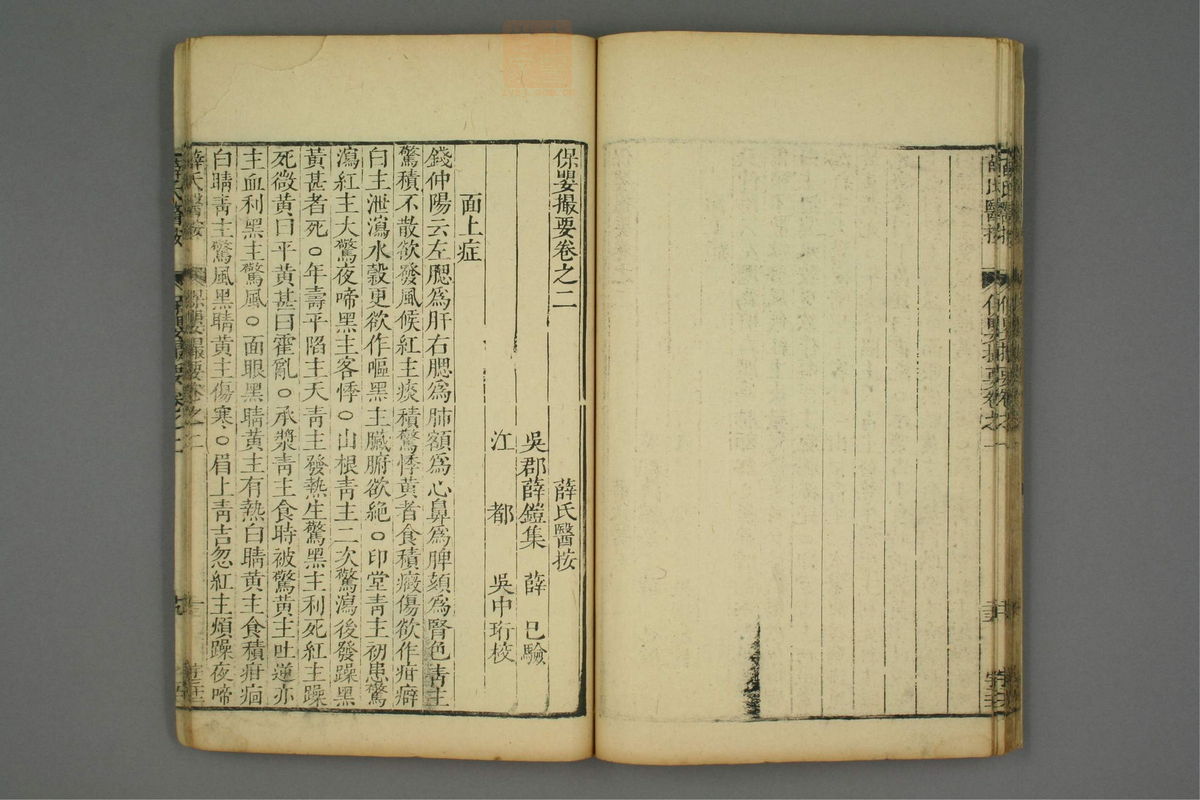 薛氏醫按
保嬰撮要卷之一
保嬰撮要卷之二
薛氏醫按
吳郡薛鎧集 薛 已驗
江 都 吳中珩校
面上症
錢仲陽云左腮爲肝右腮爲肺額爲心鼻爲脾頦爲腎色青主
驚積不散欲發風候紅主痰積驚悸黃者食積癥傷欲作疳癖
白主泄瀉水穀更欲作嘔黑主臟腑欲絶○印堂青主初患驚
瀉紅主大驚夜啼黑主客悸○山根青主二次驚瀉後發躁黑
黃甚者死○年壽平陷主夭青主發熱生驚黑主利死紅主躁
死微黃曰平黃甚曰霍亂○承漿青主食時被驚黃主吐逆亦
主血利黑主驚風○面眼黑睛黃主有熱白睛黃主食積疳痼
白睛青主驚風黑睛黃主傷寒○眉上青吉忽紅主煩躁夜啼
薛氏醫按
保嬰撮要卷之二